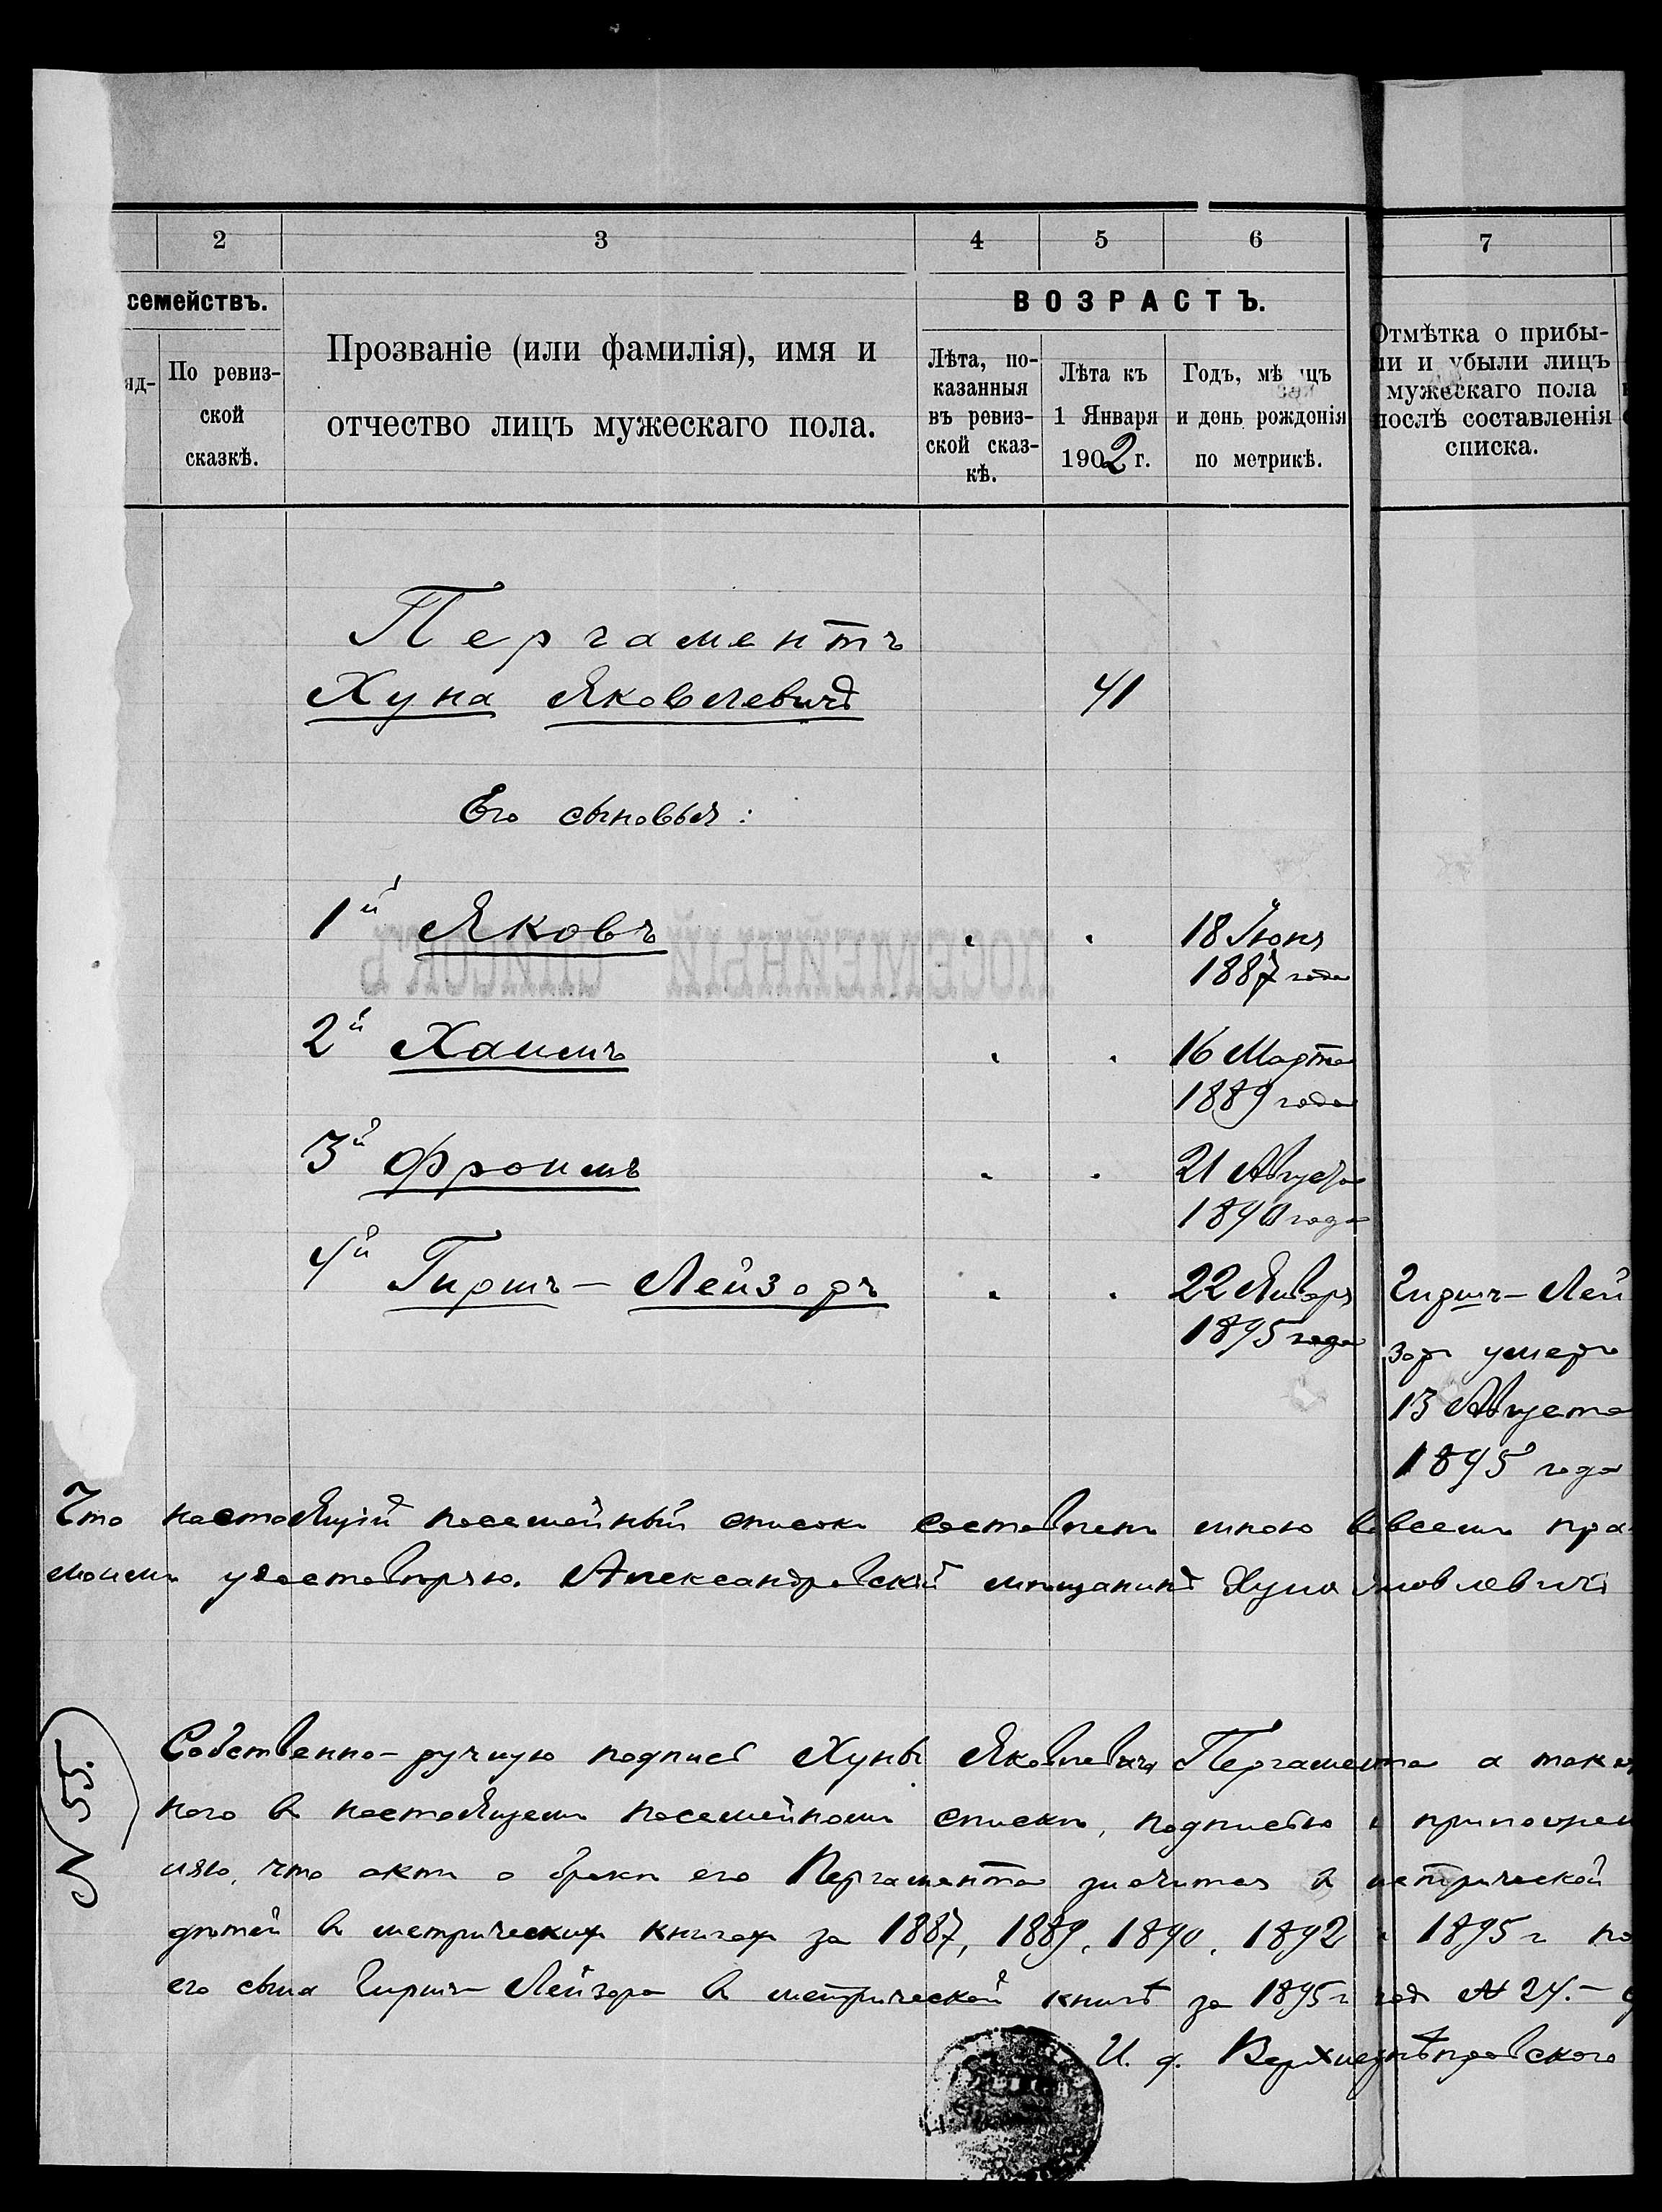 2 3 4 5 6 7
семействъ.
яд-
По ревиз-
ской
сказкѣ.
Прозваніе (или фамилія), имя и
отчество лицъ мужескаго пола.
ВОЗРАСТЪ.
Лѣта, по-
казанныя
въ ревиз-
ской сказ-
кѣ.
Лѣта къ
1 Января
1902 г.
Годъ, мѣ цъ
и день рожденія
по метрикѣ.
Отмѣтка о прибы-
ли и убыли лицъ
мужескаго пола
послѣ составленія
списка.
Пергаментъ
Хуна Яковлевичъ 41
Его сыновья:
1й Яковъ 18 Іюня
1887 года
ПОСЕМЕЙНЫЙ СПИСОКЪ
2й Хаимъ 16 Марта
1889 года
3й Фроимъ 21 Августа
1890 года
4й Гиршъ-Лейзоръ 22 Января
1895 года
Гиршъ-Лей
зоръ умеръ
13 Августа
1895 года
Что настоящій посемейный списокъ составленъ мною во всемъ пра
моимъ удостовѣряю. Александровскій мѣщанинъ Хуна Яковлевичъ
№ 55.
Собственно-ручную подпись Хуны Яковлевича Пергамента а также
наго въ настоящемъ посемейномъ спискѣ, подписью и приложен
ляю, что актъ о бракѣ его Пергамента значится въ метрической
дѣтей въ метрическихъ книгахъ за 1887, 1889, 1890, 1892 и 1895 г по
его сына Гиршъ Лейзора въ метрической книгѣ за 1895 г годъ № 24.-
И. д. Верхнеднѣпровскаго